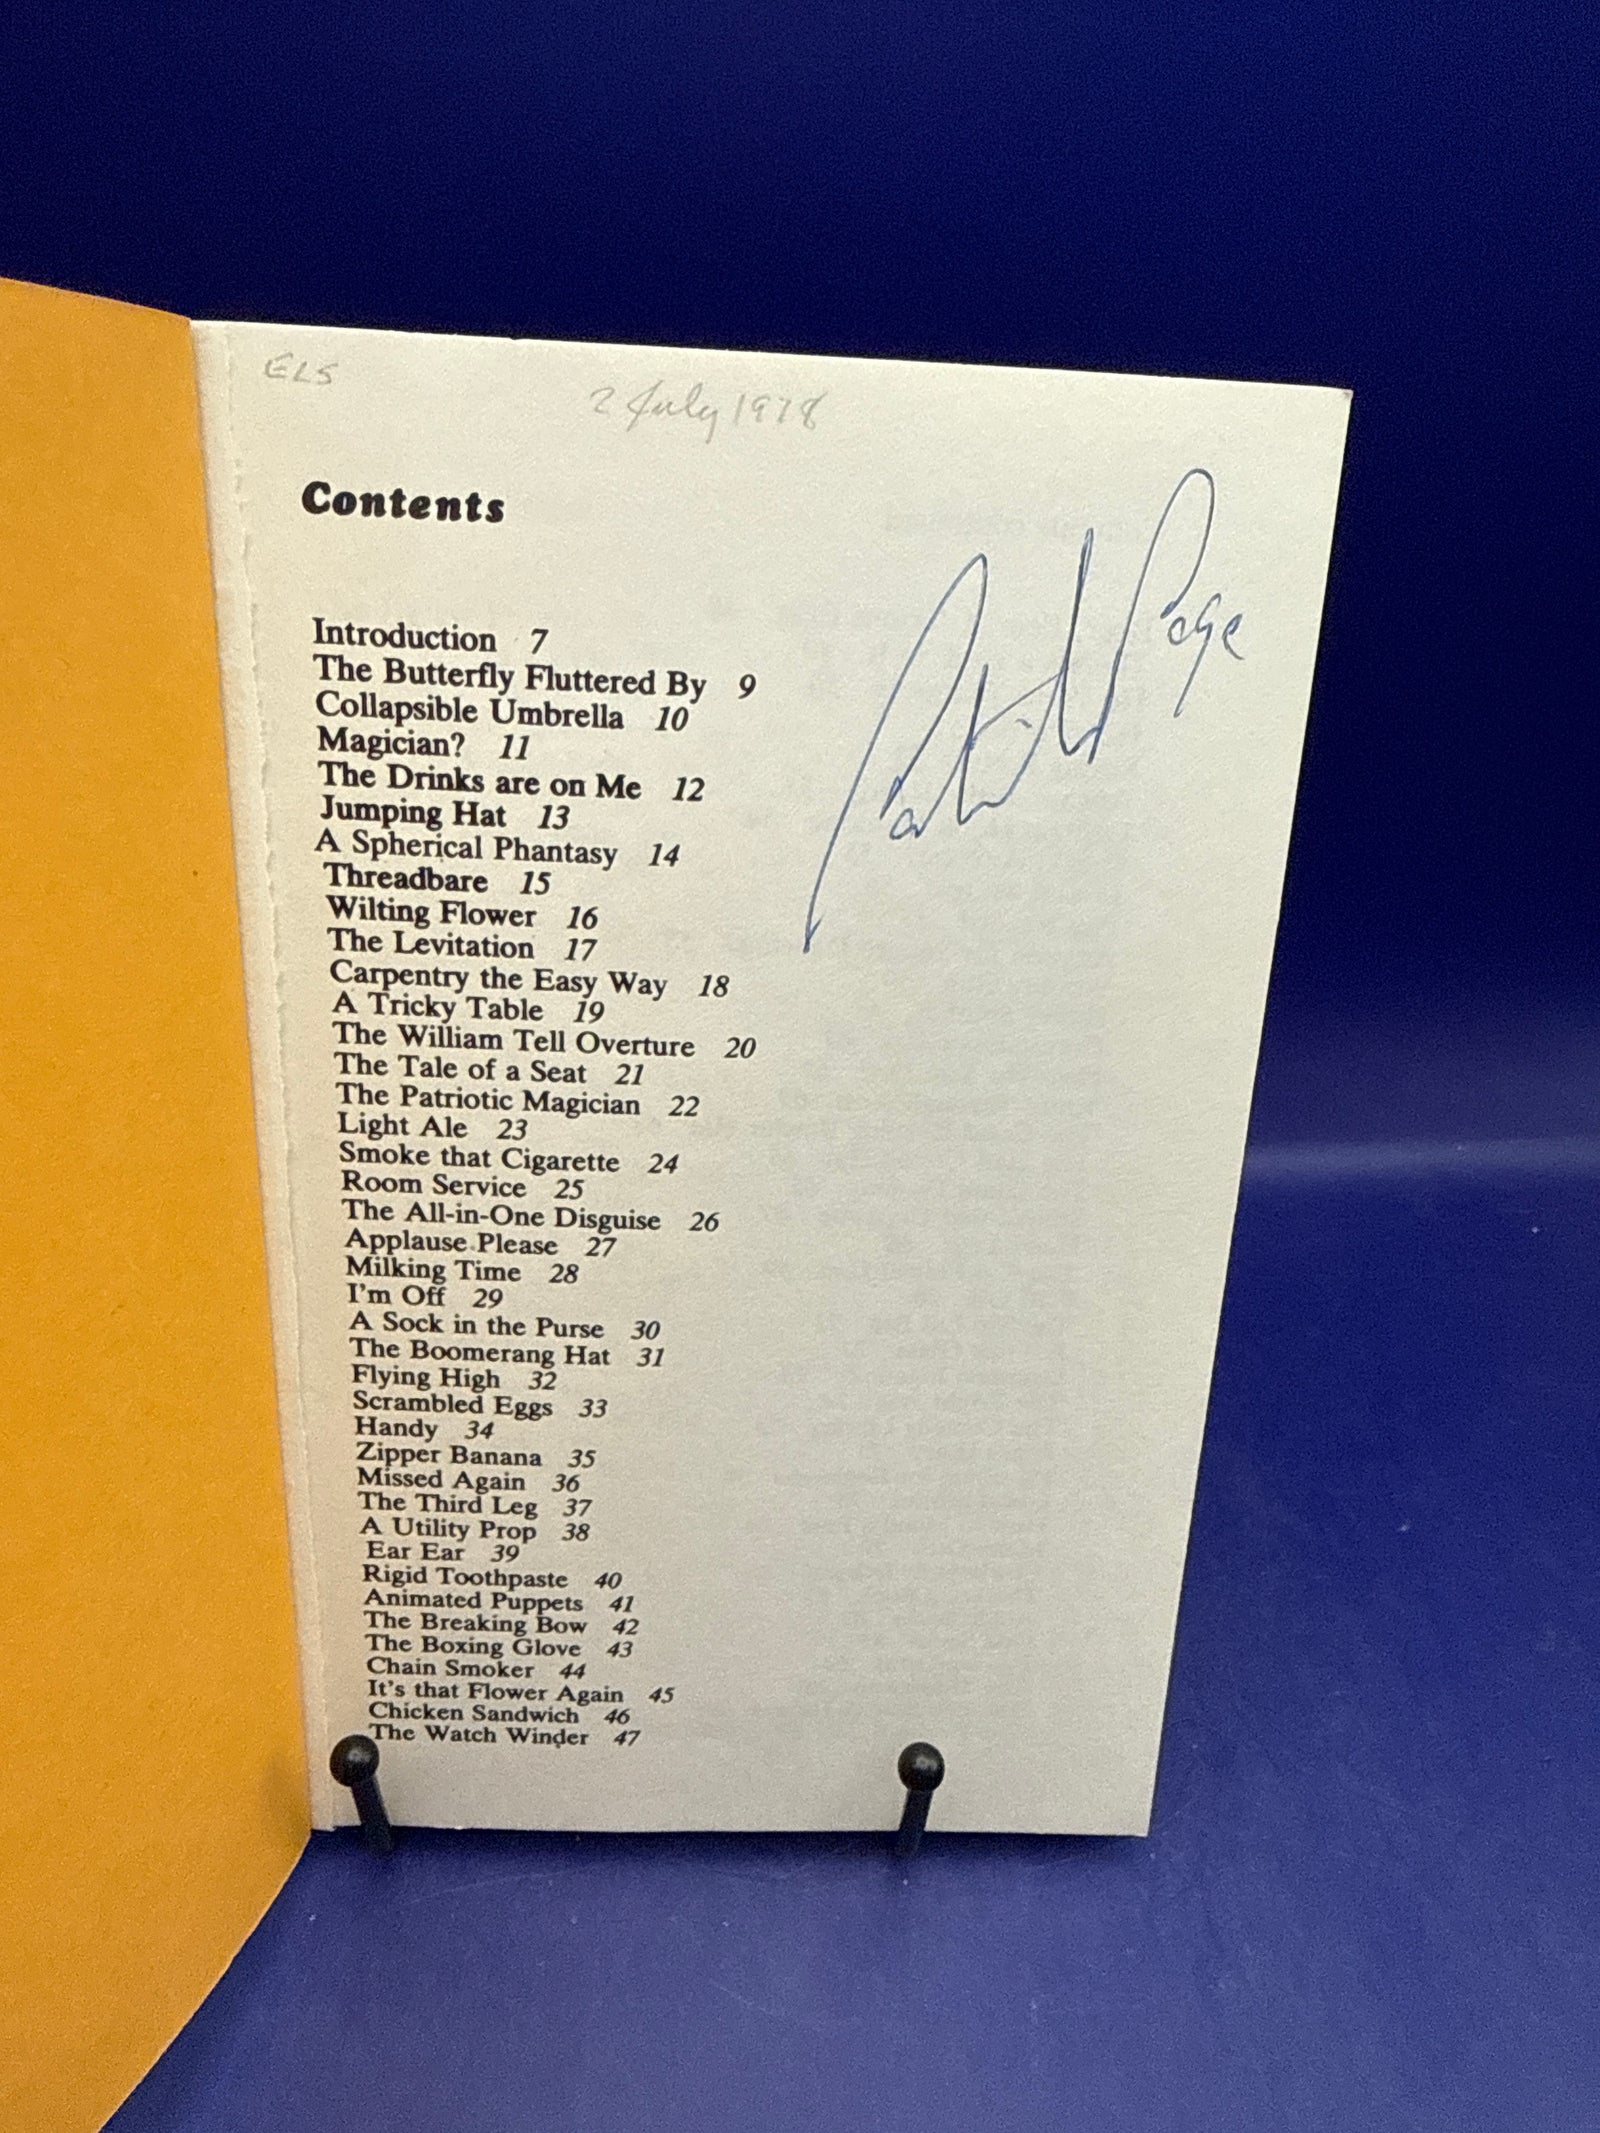 ELS
2 July 1978
Contents
Patrick Page
Introduction 7
The Butterfly Fluttered By 9
Collapsible Umbrella 10
Magician? 11
The Drinks are on Me 12
Jumping Hat 13
A Spherical Phantasy 14
Threadbare 15
Wilting Flower 16
The Levitation 17
Carpentry the Easy Way 18
A Tricky Table 19
The William Tell Overture 20
The Tale of a Seat 21
The Patriotic Magician 22
Light Ale 23
Smoke that Cigarette 24
Room Service 25
The All-in-One Disguise 26
Applause Please 27
Milking Time 28
I'm Off 29
A Sock in the Purse 30
The Boomerang Hat 31
Flying High 32
Scrambled Eggs 33
Handy 34
Zipper Banana 35
Missed Again 36
The Third Leg 37
A Utility Prop 38
Ear Ear 39
Rigid Toothpaste 40
Animated Puppets 41
The Breaking Bow 42
The Boxing Glove 43
Chain Smoker 44
It's that Flower Again 45
Chicken Sandwich 46
The Watch Winder 47